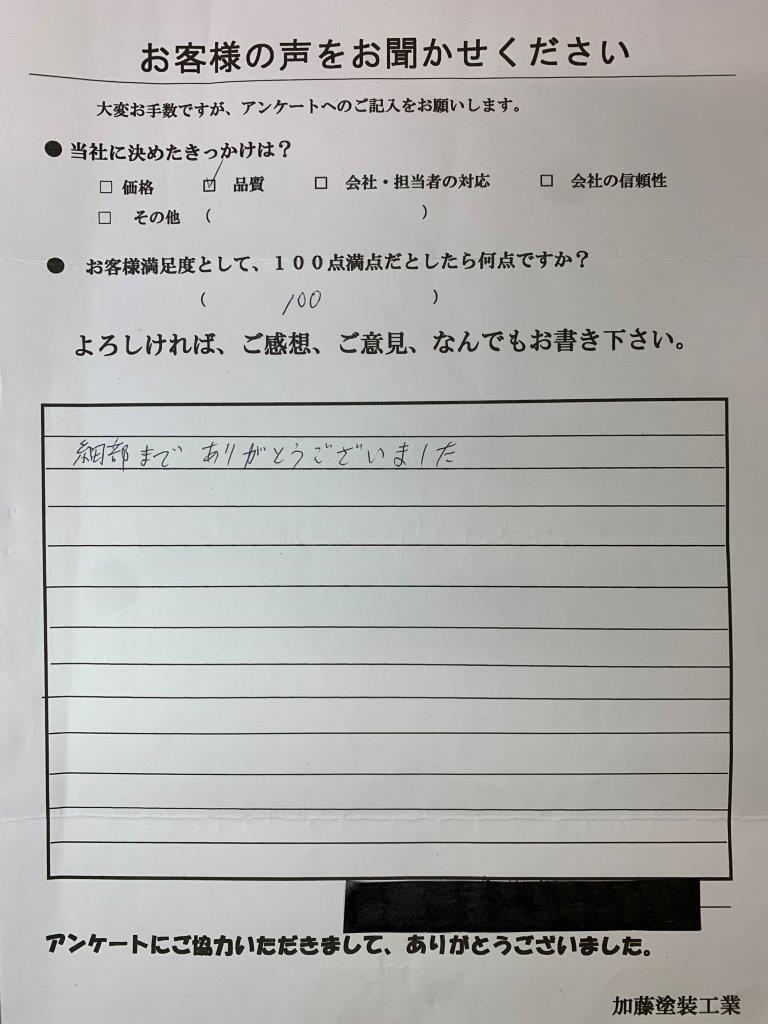 お客様の声をお聞かせください
大変お手数ですが、アンケートへのご記入をお願いします。
●当社に決めたきっかけは？
□ 価格 ☑ 品質 □ 会社・担当者の対応 □ 会社の信頼性
□ その他 （ ）
● お客様満足度として、１００点満点だとしたら何点ですか？
（ 100 ）
よろしければ、ご感想、ご意見、なんでもお書き下さい。
細部まで ありがとうございました
アンケートにご協力いただきまして、ありがとうございました。
加藤塗装工業